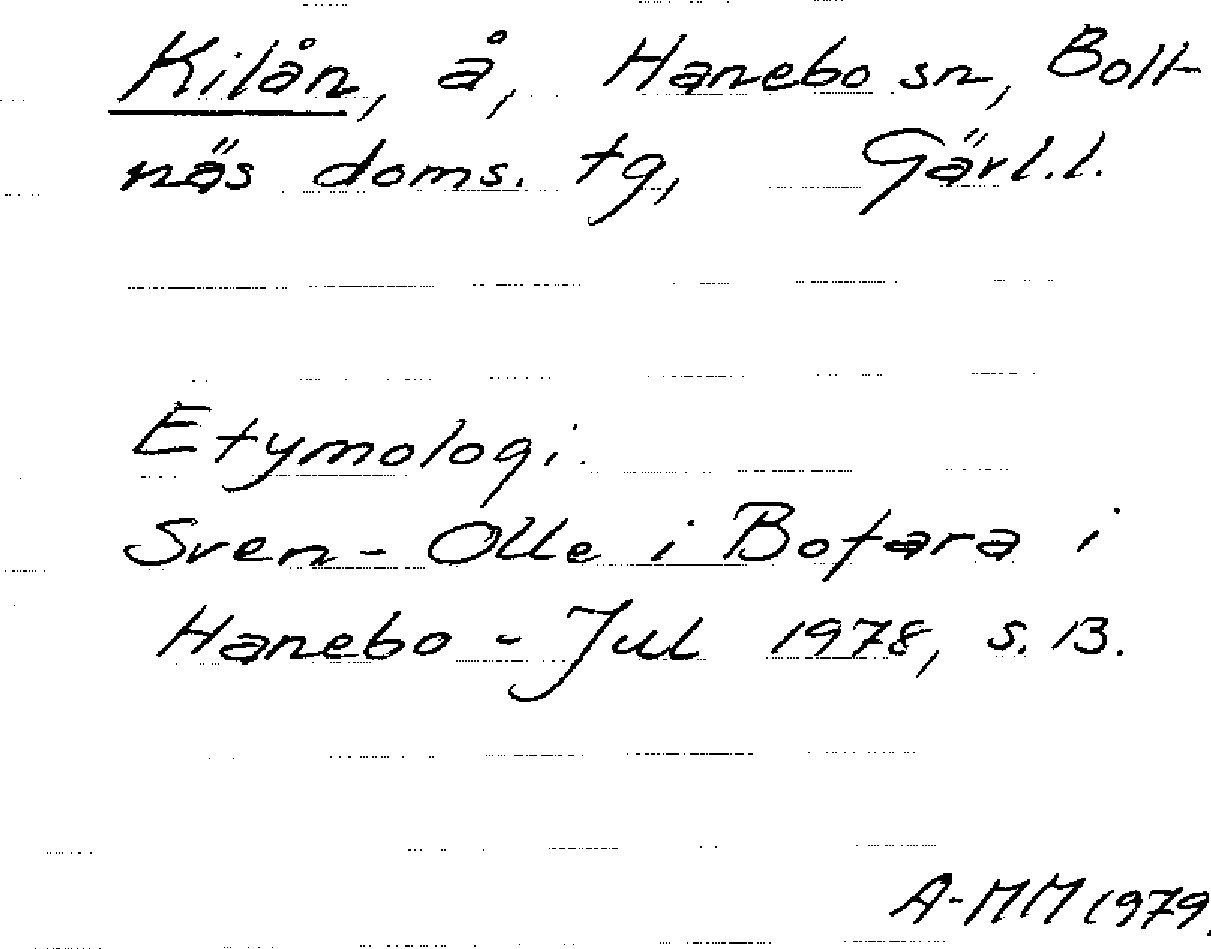 Kilån, å, Hanebo sn, Boll-
näs doms. tg, Gävl.l.
Etymologi.
Sven-Olle i Bofara i
Hanebo - Jul 1978, s. 13.
A-MM 1979.